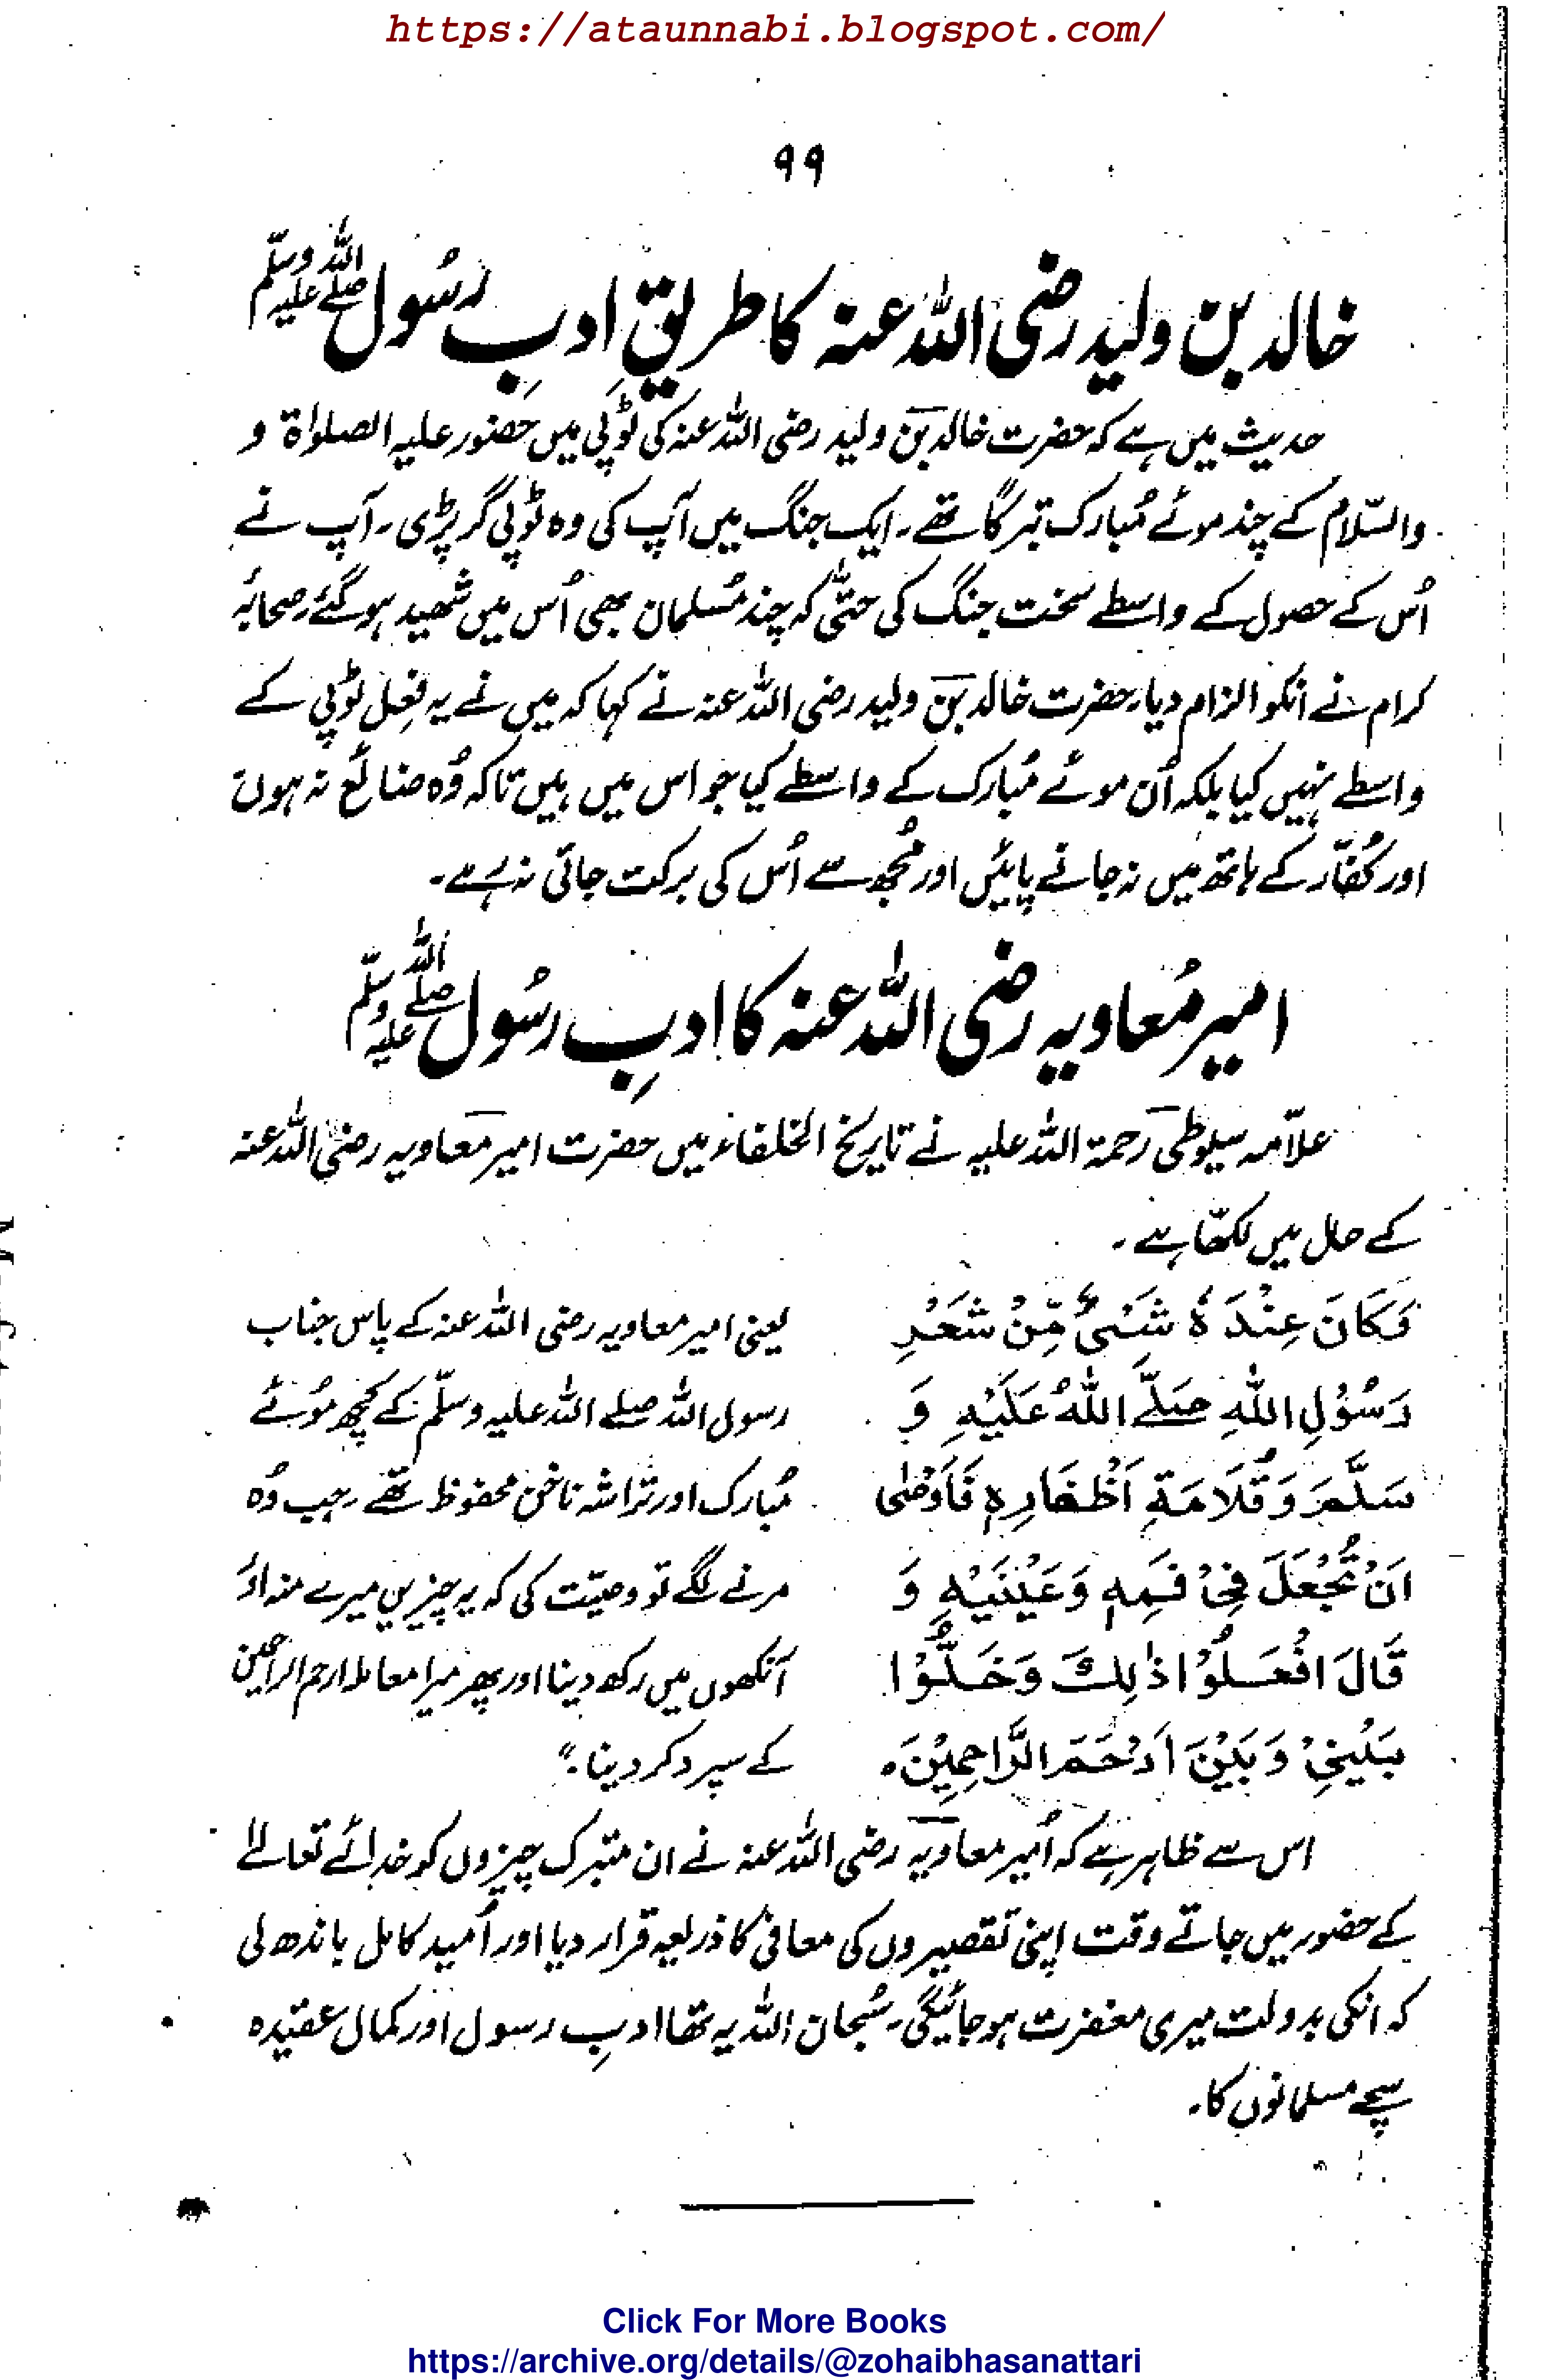 https://ataunnabi.blogspot.com/
۹۹
خالد بن ولید رضی اللہ عنہ کا طریق ادبِ رسُول صلے اللہ علیہ وسلّم
حدیث میں ہے کہ حضرت خالد بن ولید رضی اللہ عنہ کی ٹوپی میں حضور علیہ الصلواۃ و
والسّلام کے چند موئے مُبارک تبرکا تھے۔ ایک جنگ میں آپ کی وہ ٹوپی گر پڑی۔ آپ نے
اُس کے حصول کے واسطے سخت جنگ کی حتّٰی کہ چند مُسلمان بھی اُس میں شھید ہو گئے۔ صحابہٗ
کرام نے انکو الزام دیا۔ حضرت خالد بن ولید رضی اللہ عنہ نے کہا کہ میں نے یہ فِعل ٹوپی کے
واسطے نہیں کیا بلکہ اُن موئے مُبارک کے واسطے کیا جو اس میں ہیں تاکہ وُہ ضائع نہ ہوں
اور کُفّار کے ہاتھ میں نہ جانے پائیں اور مُجھ سے اُس کی برکت جاتی نہ رہے۔
امیر مُعاویہ رضی اللہ عنہ کا ادبِ رسُول صلے اللہ علیہ وسلّم
علاّمہ سیوطی رحمۃ اللہ علیہ نے تاریخ الخلفاء میں حضرت امیر معاویہ رضی اللہ عنہ
کے حال میں لکھّا ہے۔
وَكَانَ عِنْدَهٗ شَىْءٌ مِّنْ شَعْرِ
رَسُوْلِ اللهِ صَلَّے اللهُ عَلَيْهِ وَ
سَلَّمَ وَقُلَامَةِ اَظْفَارِهٖ فَاَوْصٰى
اَنْ تُجْعَلَ فِىْ فَمِهٖ وَعَيْنَيْهِ وَ
قَالَ افْعَلُوْا ذٰلِكَ وَخَلُّوْا
بَيْنِىْ وَبَيْنَ اَرْحَمَ الرَّاحِمِيْنَ۔
یعنی امیر معاویہ رضی اللہ عنہ کے پاس جناب
رسول اللہ صلے اللہ علیہ وسلّم کے کچھ مُوئے
مُبارک اور تراشہ ناخن محفوظ تھے۔ جب وُہ
مرنے لگے تو وصیّت کی کہ یہ چیزیں میرے منہ اور
آنکھوں میں رکھ دینا اور پھر میرا معاملہ ارحم الراحمین
کے سپرد کر دینا۔"
اس سے ظاہر ہے کہ امیر معاویہ رضی اللہ عنہ نے ان متبرک چیزوں کو خدائے تعالےٰ
کے حضور میں جاتے وقت اپنی تقصیروں کی معافی کا ذریعہ قرار دیا اور اُمید کامل باندھ لی
کہ انکی بدولت میری مغفرت ہو جائیگی۔ سُبحان اللہ یہ تھا ادبِ رسول اور کمال عقیدہ
سچے مسلمانوں کا۔
Click For More Books
https://archive.org/details/@zohaibhasanattari